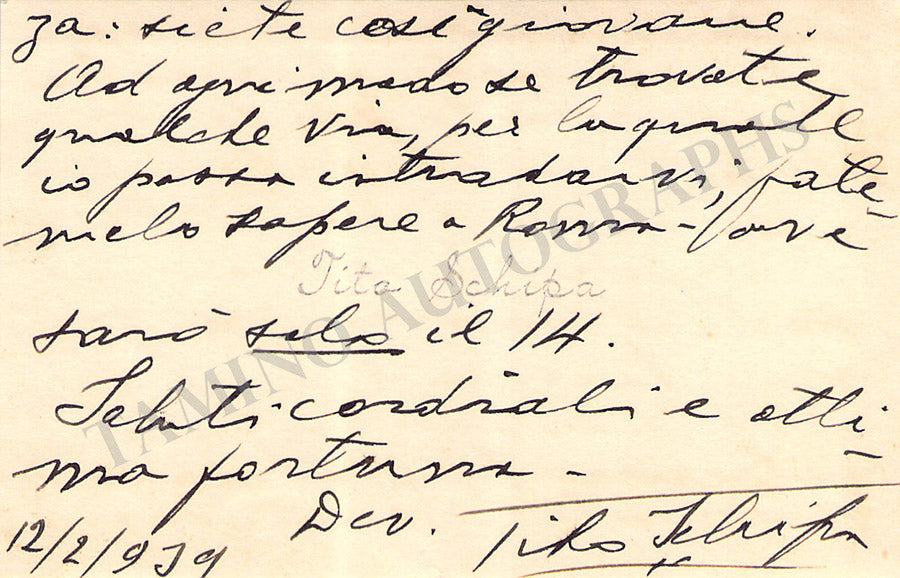 za: siete così giovane.
Ad ogni modo se trovate
qualche via, per la quale
io possa intradarvi, fate-
melo sapere a Roma - ove
Tito Schipa
sarò solo il 14.
Saluti cordiali e otti-
ma fortuna -
Dev. Tito Schipa
12/2/939
TAMINO AUTOGRAPHS